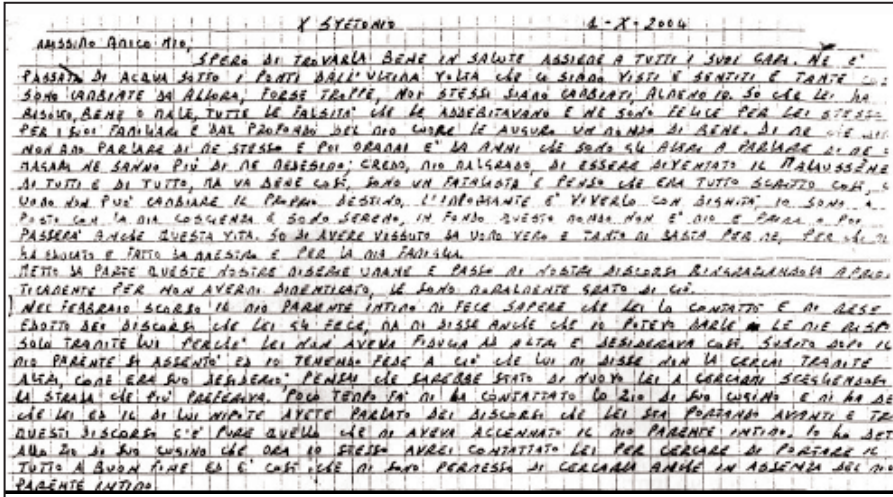 X SVETONIO 1-X-2004
MASSIMO AMICO MIO,
SPERO DI TROVARLA BENE IN SALUTE ASSIEME A TUTTI I SUOI CARI. NE E'
PASSATA DI ACQUA SOTTO I PONTI DALL'ULTIMA VOLTA CHE CI SIAMO VISTI E SENTITI E TANTE
SONO CAMBIATE DA ALLORA, FORSE TROPPE, NOI STESSI SIAMO CAMBIATI, ALMENO IO. SO CHE LEI HA
RISOLTO, BENE O MALE, TUTTE LE FALSITA' CHE LE ADDEBITAVANO E NE SONO FELICE PER LEI STESSO
PER I SUOI FAMILIARI E DAL PROFONDO DEL MIO CUORE LE AUGURO UN MONDO DI BENE. DI ME
NON AMO PARLARE DI ME STESSO E POI ORAMAI E' DA ANNI CHE SONO GLI ALTRI A PARLARE DI ME
MAGARI NE SANNO PIU' DI ME MEDESIMO; CREDO, MIO MALGRADO, DI ESSERE DIVENTATO IL MALAUSSÈNE
DI TUTTI E DI TUTTO, MA VA BENE COSI', SONO UN FATALISTA E PENSO CHE ERA TUTTO SCRITTO COSI',
UOMO NON PUO' CAMBIARE IL PROPRIO DESTINO, L'IMPORTANTE E' VIVERLO CON DIGNITA'. IO SONO A
POSTO CON LA MIA COSCIENZA E SONO SERENO, IN FONDO QUESTO MONDO NON E' MIO E PRIMA O POI
PASSERA' ANCHE QUESTA VITA. SO DI AVERE VISSUTO DA UOMO VERO E TANTO MI BASTA PER ME, PER CHI MI
HA EDUCATO E FATTO DA MAESTRO E PER LA MIA FAMIGLIA.
METTO DA PARTE QUESTE NOSTRE MISERIE UMANE E PASSO AI NOSTRI DISCORSI RINGRAZIANDOLA APRIO-
TICAMENTE PER NON AVERMI DIMENTICATO, LE SONO MORALMENTE GRATO DI CIO'.
NEL FEBBRAIO SCORSO IL MIO PARENTE INTIMO MI FECE SAPERE CHE LEI LO CONTATTO' E MI RESE
EDOTTO DEI DISCORSI CHE LEI GLI FECE, MA MI DISSE ANCHE CHE IO POTEVO DARLE LE MIE RISPO
SOLO TRAMITE LUI PERCHE' LEI NON AVEVA FIDUCIA AD ALTRI E DESIDERAVA COSI'. SUBITO DOPO IL
MIO PARENTE SI ASSENTO' ED IO TENENDO FEDE A CIO' CHE LUI MI DISSE NON LA CERCAI TRAMITE
ALTRI, COME ERA SUO DESIDERIO; PENSAI CHE SAREBBE STATO DI NUOVO LEI A CERCARMI SCEGLIENDOSI
LA STRADA CHE PIU' PREFERIVA. POCO TEMPO FA' MI HA CONTATTATO LO ZIO DI SUO CUGINO E MI HA DE
CHE LEI ED IL DI LUI NIPOTE AVETE PARLATO DEI DISCORSI CHE LEI STA PORTANDO AVANTI E TR
QUESTI DISCORSI C'E' PURE QUELLO CHE MI AVEVA ACCENNATO IL MIO PARENTE INTIMO. IO HO DET
ALLO ZIO DI SUO CUGINO CHE ORA IO STESSO AVREI CONTATTATO LEI PER CERCARE DI PORTARE IL
TUTTO A BUON FINE ED E' COSI' CHE MI SONO PERMESSO DI CERCARLA ANCHE IN ASSENZA DEL MIO
PARENTE INTIMO.